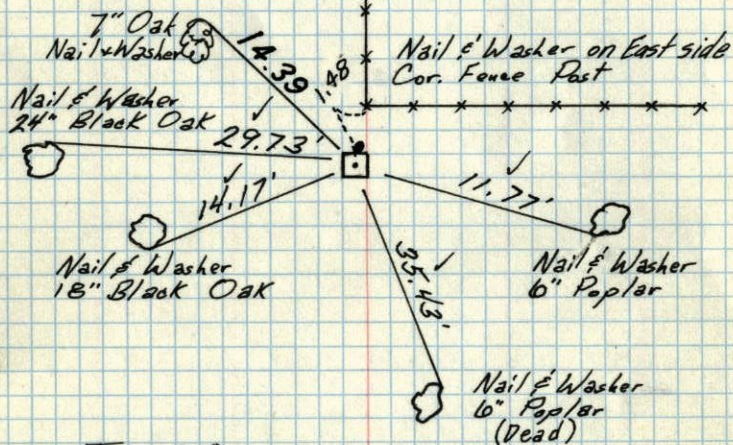 7" Oak
Nail & Washer
14.39
1.48'
Nail & Washer on East side
Cor. Fence Post
Nail & Washer
24" Black Oak
29.73'
14.17'
11.77'
Nail & Washer
18" Black Oak
35.43'
Nail & Washer
6" Poplar
Nail & Washer
6" Poplar
(Dead)